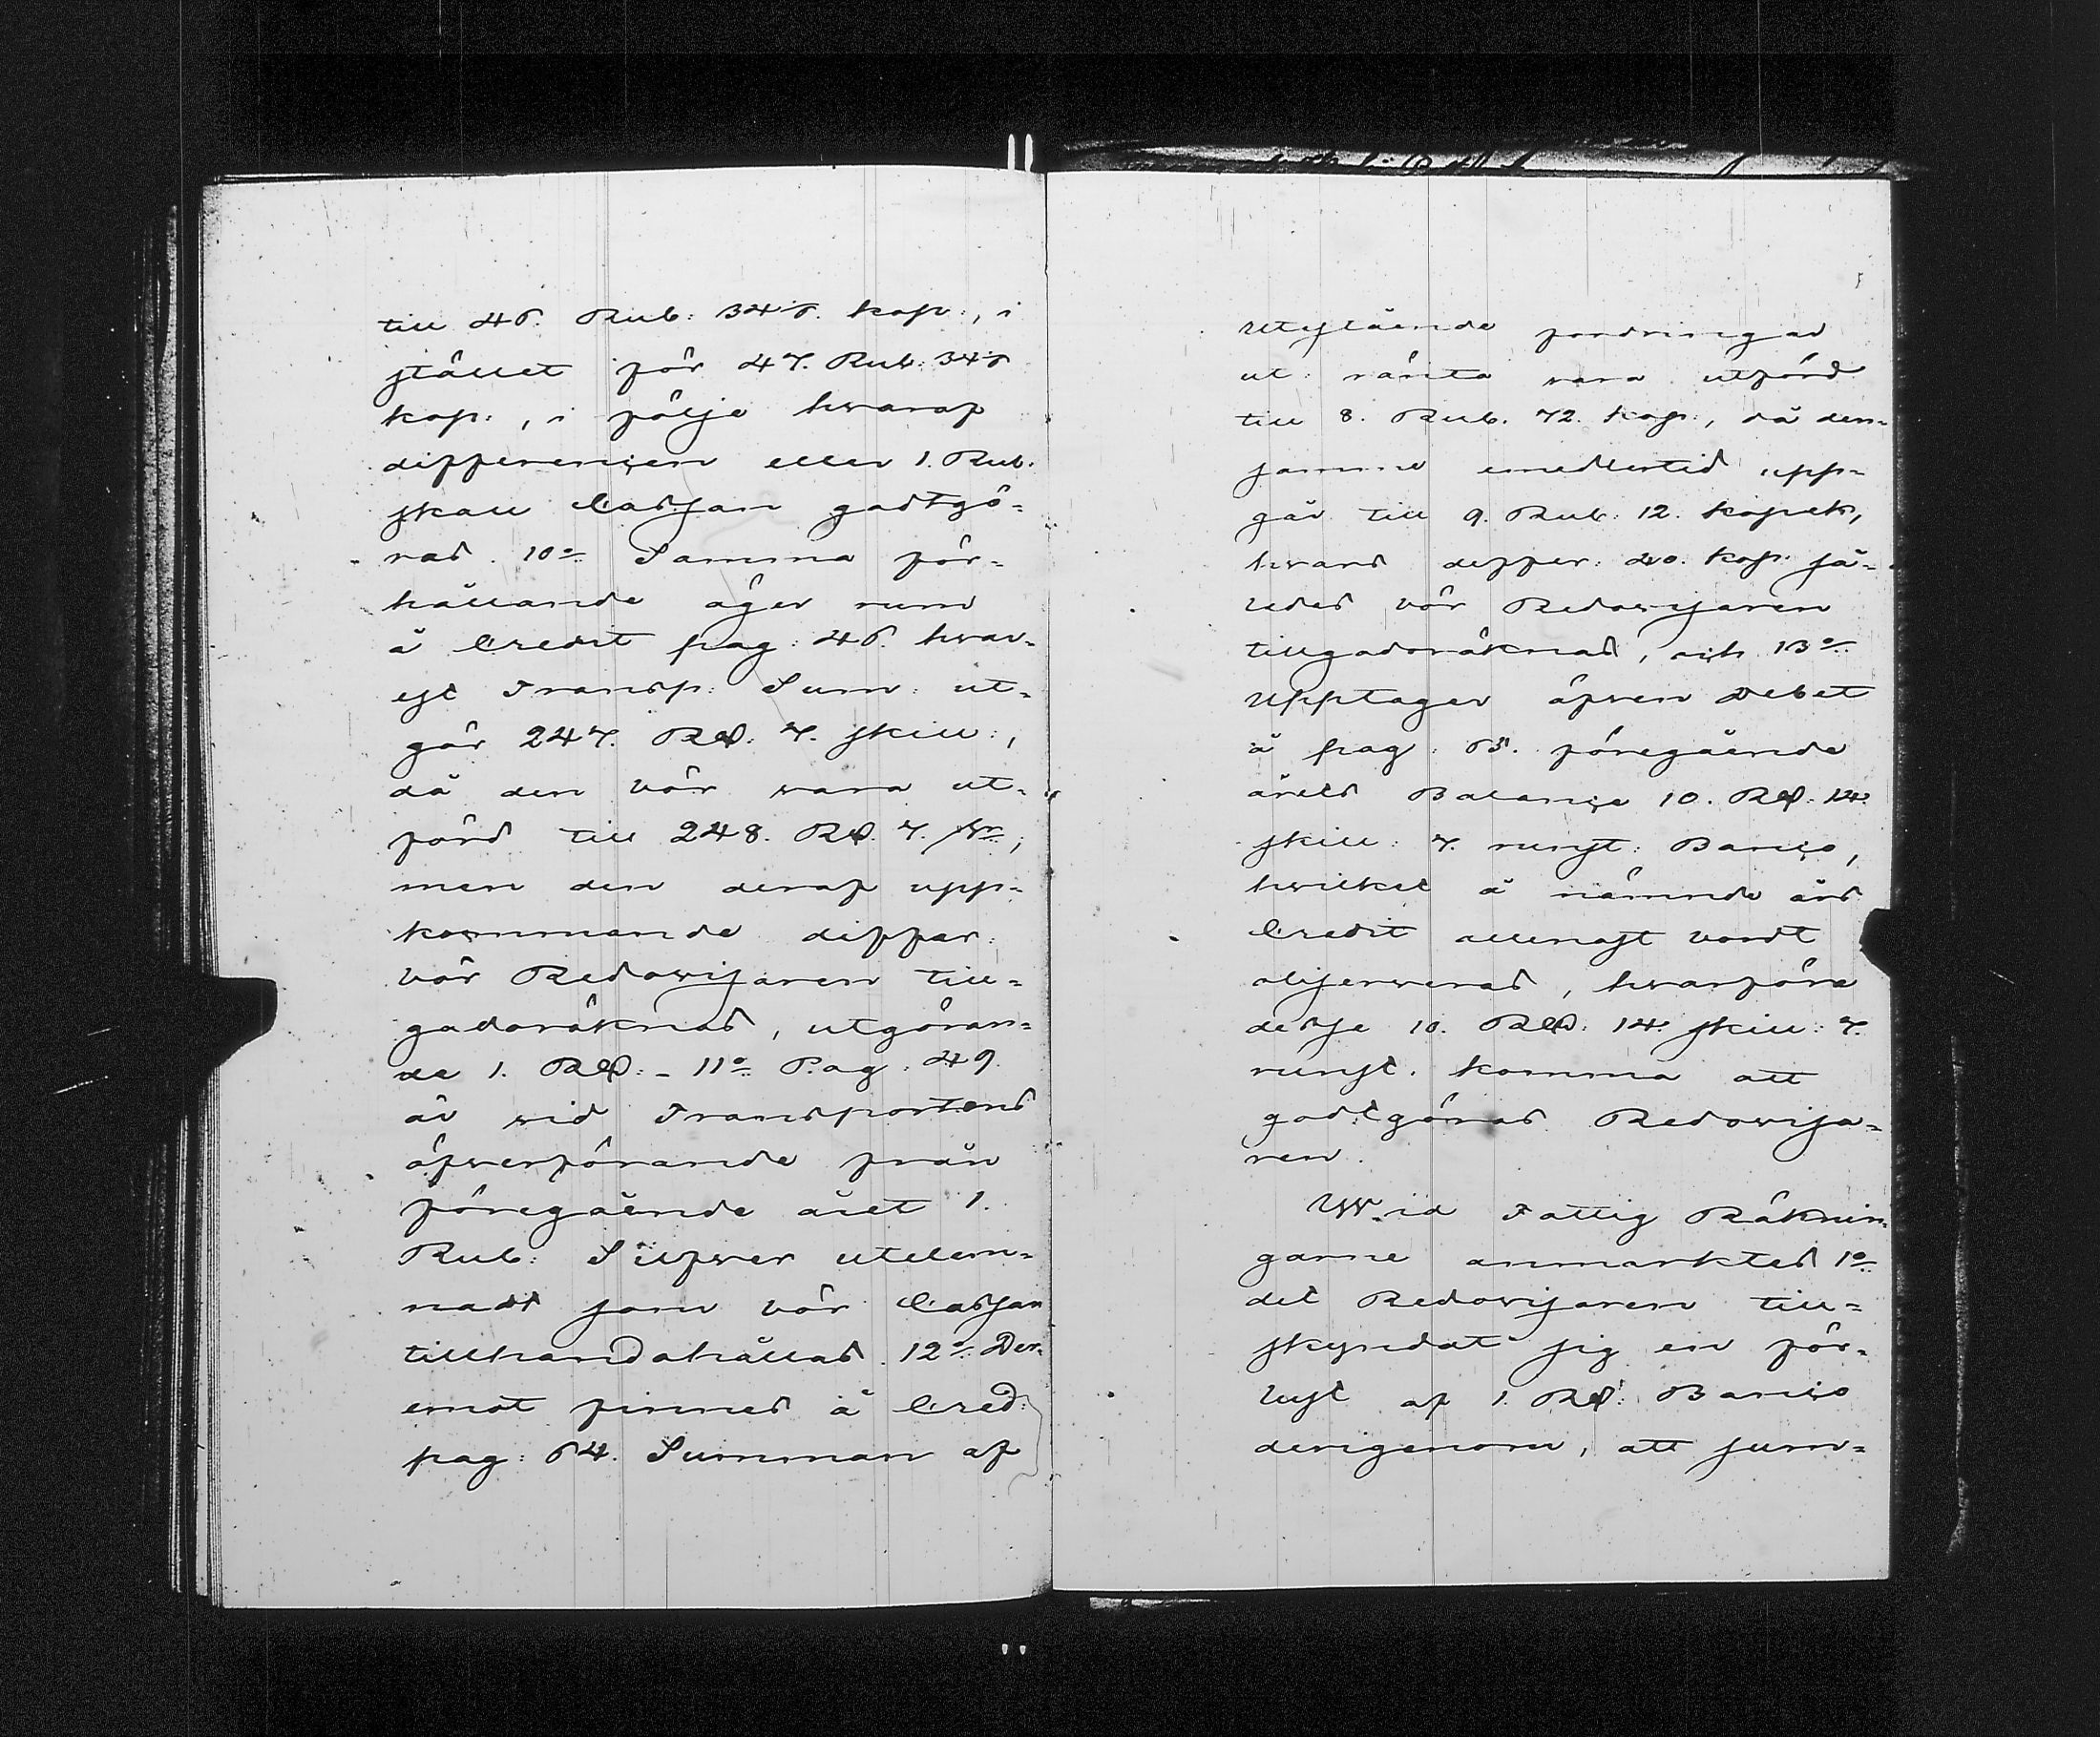 till 46. Rub: 34 5/7. kop:, i
stället för 47. Rub: 34 5/7
kop:, i följe hwaraf
differençen eller 1. Rub.
skall Cassan godtgö=
ras. 10:o Samma för=
hållande äger rum
å Credit pag: 46. hwar=
est Transp: Sum: ut=
gör 247. Rd: 7. skill:,
då den bör wara ut=
förd till 248. Rd. 7. s:,
men den deraf upp=
kommande differ:
bör Redowisaren till=
godoräknas, utgöran=
de 1. Rd: - 11:o Pag: 49.
är wid Transportens
öfwerförande från
föregående året 1.
Rub: Silfwer utelem=
nadt som bör Cassan
tillhandahållas. 12:o Der=
emot finnes å Cred:
pag: 64. Summan af
Utestående fordringar
ut ränta vara utförd
till 8. Rub. 72. kop:, då den=
samma emedlertid upp=
går till 9. Rub: 12. kopek,
hwars differ: 40. kop: så=
ledes bör Redowisaren
tillgodoräknas, och 13:o
Upptager äfwen Debet
å pag: 65. föregående
årets Balançe 10. Rd: 14.
skill: 7. runst: Banço,
hwilket å nämnde års
Credit allenast bordt
observeras, hwarföre
desse 10. Rd: 14. skill: 7.
runst. komma att
godtgöras Redowisa=
ren.
Wid Fattig Räknin=
garne anmärktes 1:o
det Redowisaren till=
skyndat sig en för=
lust af 1. Rd: Banço
derigenom, att sum=